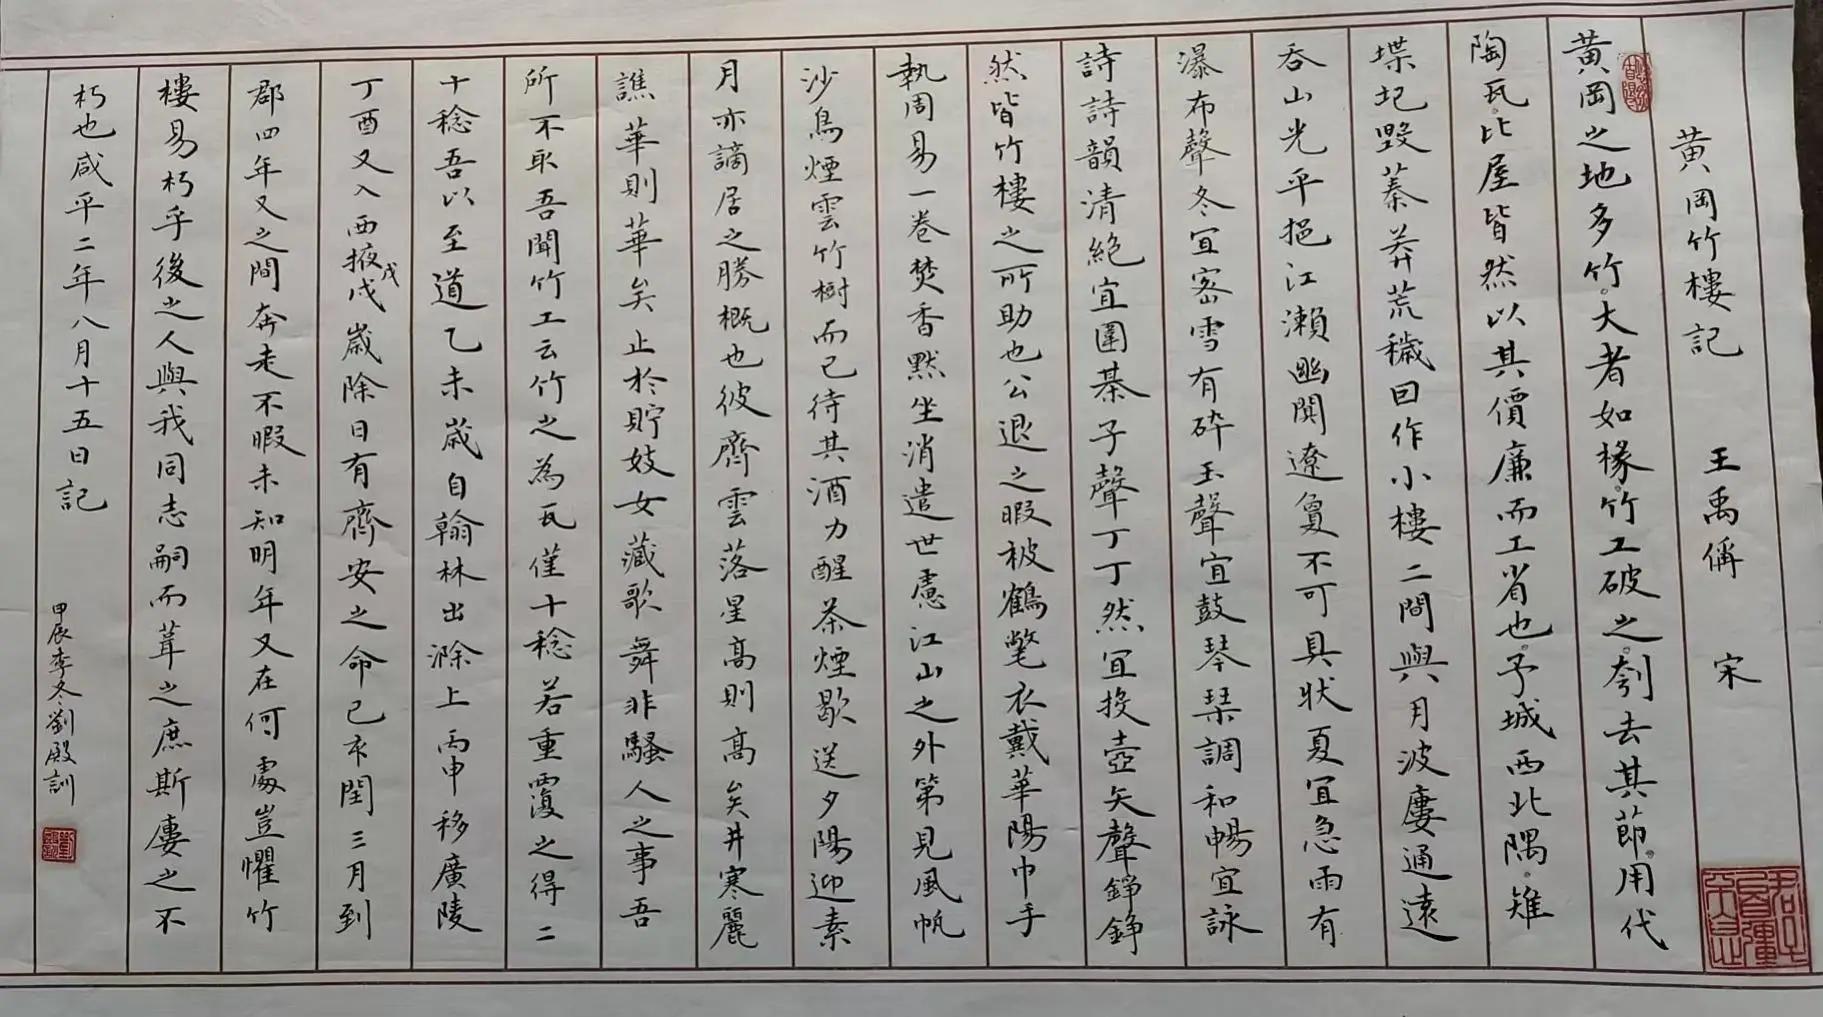 黄岡竹樓記 王禹偁 宋
黃岡之地多竹。大者如椽。竹工破之。刳去其節。用代
陶瓦。比屋皆然以其價廉而工省也。予城西北隅。雉
堞圮毀蓁莽荒穢因作小樓二間與月波樓通遠
吞山光平挹江瀨幽闃遼夐不可具狀夏宜急雨有
瀑布聲冬宜密雪有碎玉聲宜鼓琴琹調和暢宜詠
詩詩韻清絕宜圍棊子聲丁丁然宜投壺矢聲錚錚
然皆竹樓之所助也公退之暇被鶴氅衣戴華陽巾手
執周易一卷焚香默坐消遣世慮江山之外第見風帆
沙鳥煙雲竹樹而已待其酒力醒茶煙歇送夕陽迎素
月亦謫居之勝概也彼齊雲落星高則高矣井寒麗
譙華則華矣止於貯妓女藏歌舞非騷人之事吾
所不取吾聞竹工云竹之為瓦僅十稔若重覆之得二
十稔吾以至道乙未歲自翰林出滁上丙申移廣陵
丁酉又入西掖戊戌歲除日有齊安之命己亥閏三月到
郡四年之間奔走不暇未知明年又在何處豈懼竹
樓易朽乎後之人與我同志嗣而葺之庶斯樓之不
朽也咸平二年八月十五日記
甲辰季冬劉殿訓